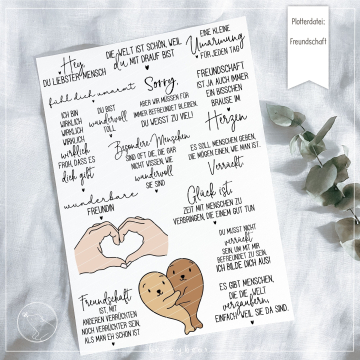 Plotterdatei:
Freundschaft
Hey,
DU LIEBSTER MENSCH
DIE WELT IST SCHÖN, WEIL
DU MIT DRAUF BIST
EINE KLEINE
Umarmung
FÜR JEDEN TAG
fühl dich umarmt
Sorry,
ABER WIR MÜSSEN FÜR
IMMER BEFREUNDET BLEIBEN.
DU WEISST ZU VIEL!
FREUNDSCHAFT
IST JA AUCH IMMER
EIN BISSCHEN
BRAUSE IM
Herzen
ICH BIN
WIRKLICH
WIRKLICH
WIRKLICH
wirklich
FROH, DASS ES
dich gibt
DU BIST
wundervoll
TOLL
Besondere Menschen
SIND OFT DIE, DIE GAR
NICHT WISSEN, WIE
wundervoll
SIE SIND
ES SOLL MENSCHEN GEBEN,
DIE MÖGEN EINEN, WIE MAN IST.
Verrückt
wunderbare
FREUNDIN
Glück ist,
ZEIT MIT MENSCHEN ZU
VERBRINGEN, DIE EINEM GUT TUN
DU MUSST NICHT
verrückt
SEIN, UM MIT MIR
BEFREUNDET ZU SEIN.
ICH BILDE DICH AUS!
Freundschaft
IST, MIT
ANDEREN VERRÜCKTEN
NOCH VERRÜCKTER SEIN,
ALS MAN EH SCHON IST
ES GIBT MENSCHEN,
DIE DIE WELT
verzaubern,
EINFACH WEIL SIE DA SIND.